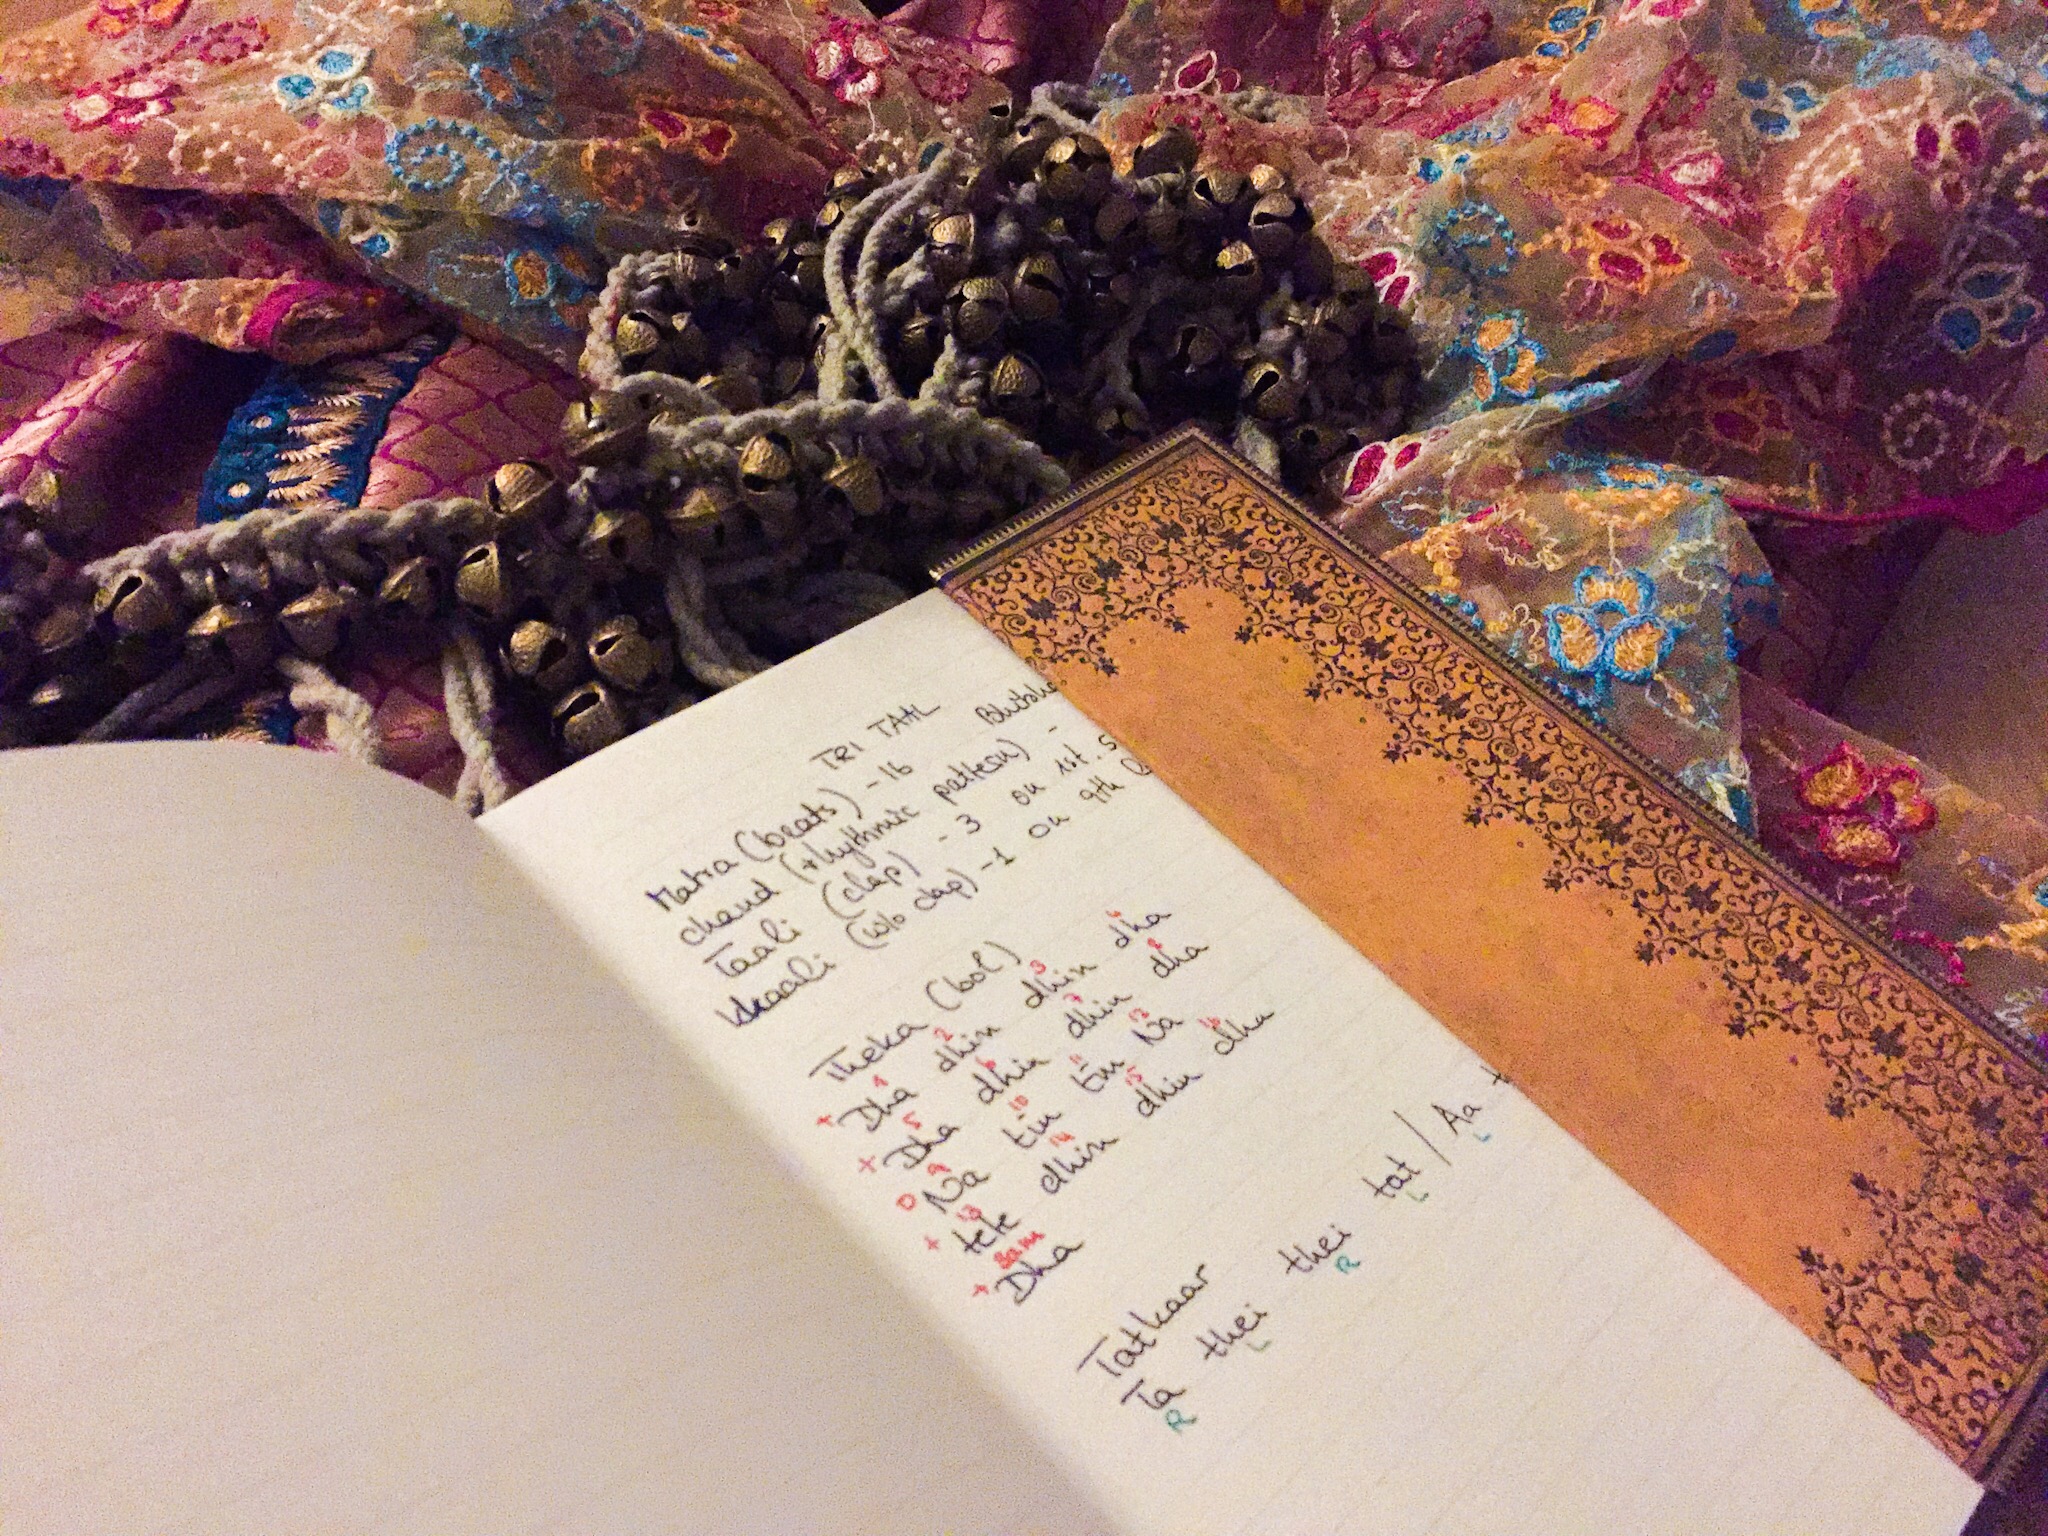 TRI TAAL
Matra (beats) - 16
chand (rhythmic pattern) -
Taali (clap) - 3 on 1st. 5
Khaali (w/o clap) - 1 on 9th
Theka (bol)
1 2 3 4
+ Dha dhin dhin dha
5 6 7 8
+ Dha dhin dhin dha
9 10 11 12
0 Na tin tin Na
13 14 15 16
+ tete dhin dhin dha
sam
+ Dha
Tatkaar
Ta thei thei tat / Aa t
R L R L L